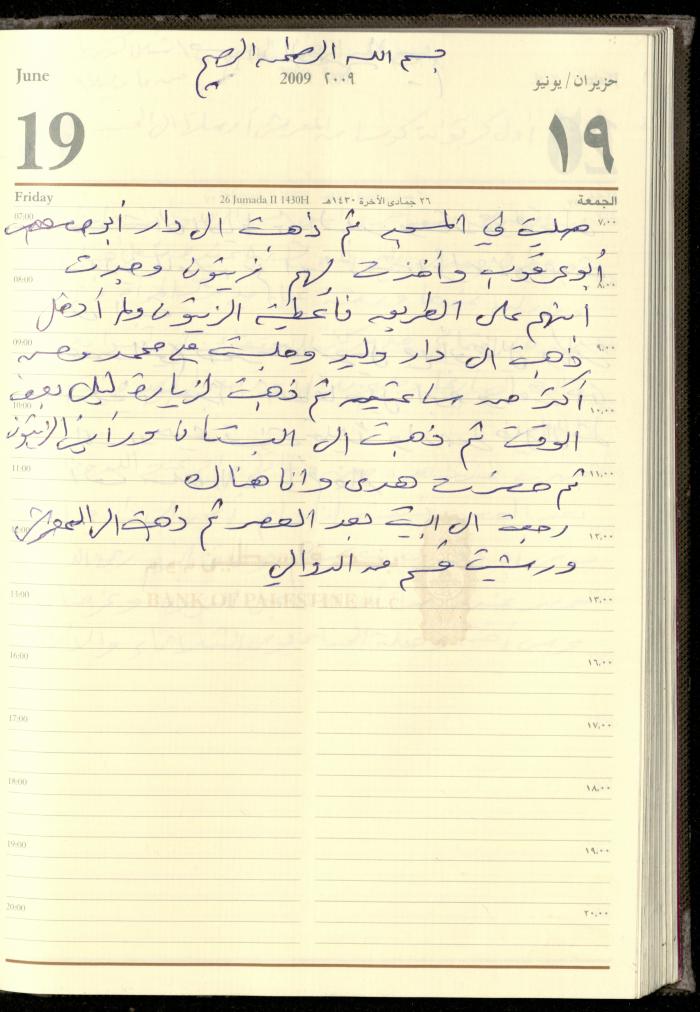 بسم الله الرحمن الرحيم
June
2009 ٢٠٠٩
حزيران/يونيو
19
١٩
Friday
26 Jumada II 1430H
٢٦ جمادى الآخرة ١٤٣٠هـ
الجمعة
07:00 صليت في المسجد ثم ذهبت الى دار أبو ٧,٠٠
أبو عرقوب وأخذت لهم زيتون وجدت
08:00 ٨,٠٠
ابنهم على الطريق فأعطيته الزيتون ولم أدخل
09:00 ذهبت الى دار وليد وجلست مع محمد وحسن ٩,٠٠
أكثر من ساعتين ثم ذهبت لزيارة ليلى بعض
10:00 ١٠,٠٠
الوقت ثم ذهبت الى البستان ورأيت الزيتون
11:00 ١١,٠٠
ثم حضرت هدى وانا هناك
رجعت الى البيت بعد العصر ثم ذهبت الى ١٢,٠٠
ورشيت قسم من الدوالي
13:00 ١٣,٠٠
BANK OF PALESTINE PLC
16:00 ١٦,٠٠
17:00 ١٧,٠٠
18:00 ١٨,٠٠
19:00 ١٩,٠٠
20:00 ٢٠,٠٠